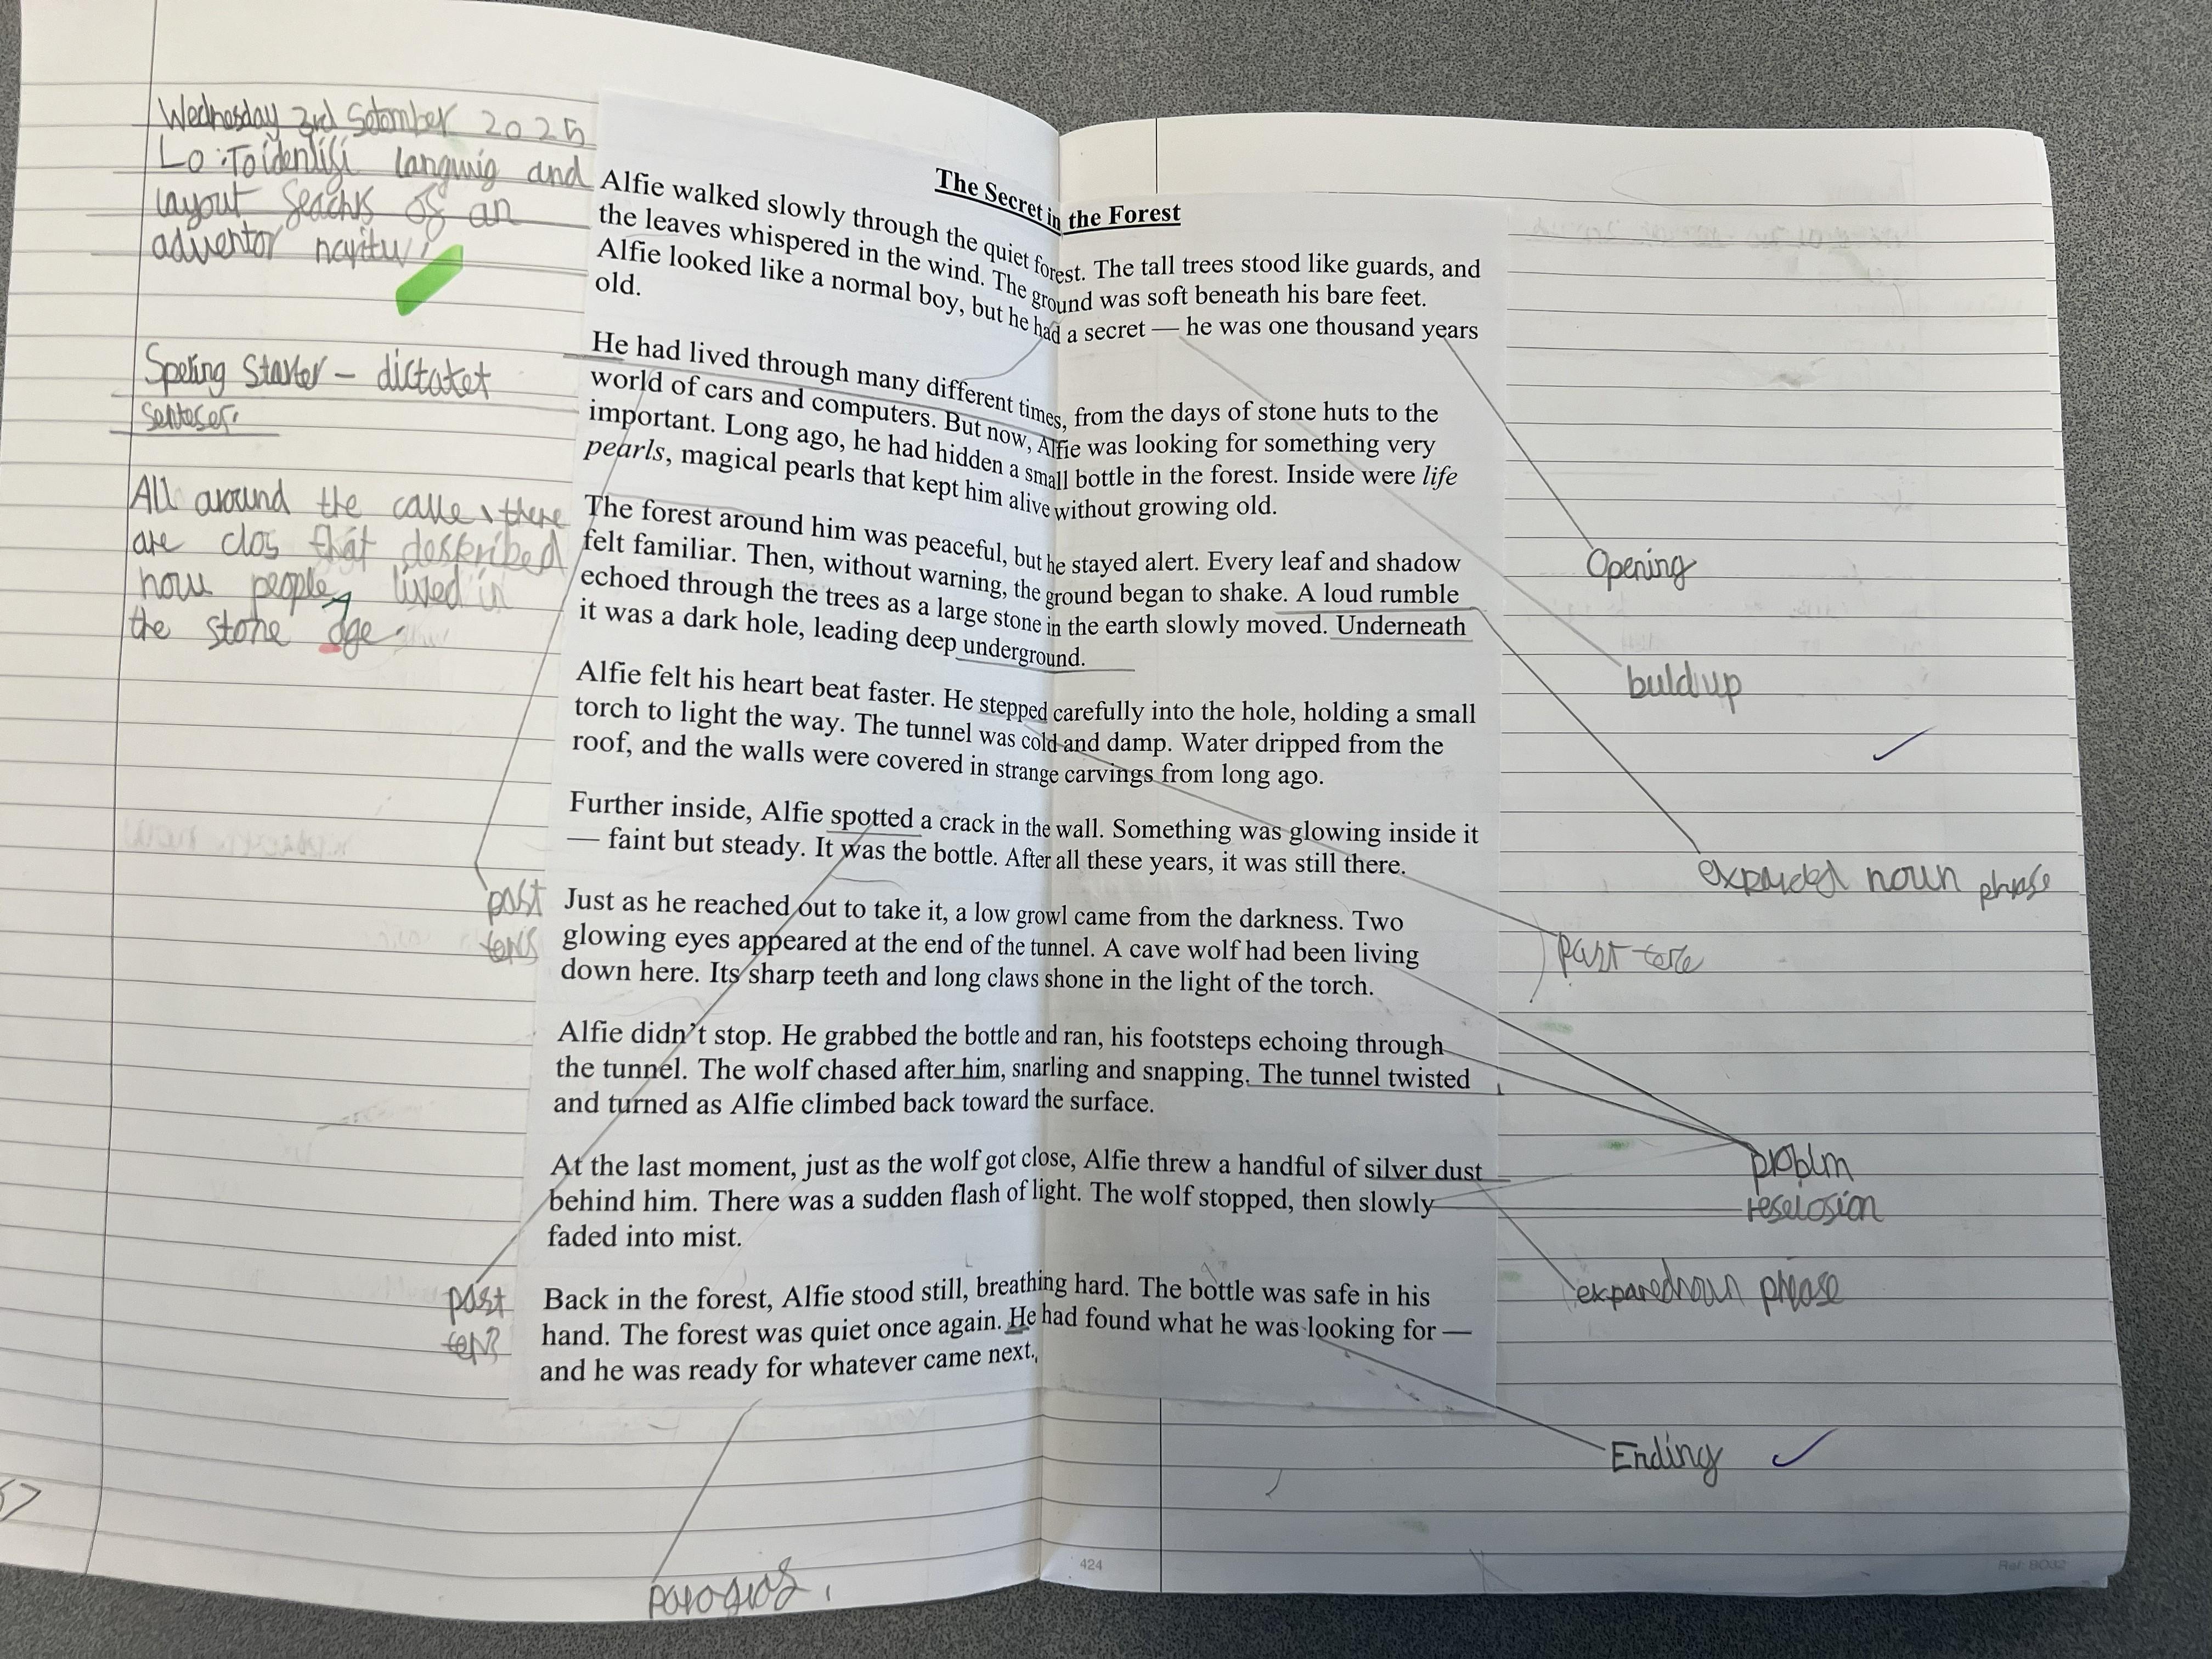 Wednesday 3rd Setomber 2025
Lo: To identifi languig and
layout seachis of an
adventor naritu.
Speling Starter – dictatet
senteser.
All around the cave, there
are clos that described
how people lived in
the stone age.
The Secret in the Forest
Alfie walked slowly through the quiet forest. The tall trees stood like guards, and
the leaves whispered in the wind. The ground was soft beneath his bare feet.
Alfie looked like a normal boy, but he had a secret — he was one thousand years
old.
He had lived through many different times, from the days of stone huts to the
world of cars and computers. But now, Alfie was looking for something very
important. Long ago, he had hidden a small bottle in the forest. Inside were life
pearls, magical pearls that kept him alive without growing old.
The forest around him was peaceful, but he stayed alert. Every leaf and shadow
felt familiar. Then, without warning, the ground began to shake. A loud rumble
echoed through the trees as a large stone in the earth slowly moved. Underneath
it was a dark hole, leading deep underground.
Alfie felt his heart beat faster. He stepped carefully into the hole, holding a small
torch to light the way. The tunnel was cold and damp. Water dripped from the
roof, and the walls were covered in strange carvings from long ago.
Further inside, Alfie spotted a crack in the wall. Something was glowing inside it
— faint but steady. It was the bottle. After all these years, it was still there.
Just as he reached out to take it, a low growl came from the darkness. Two
glowing eyes appeared at the end of the tunnel. A cave wolf had been living
down here. Its sharp teeth and long claws shone in the light of the torch.
Alfie didn't stop. He grabbed the bottle and ran, his footsteps echoing through
the tunnel. The wolf chased after him, snarling and snapping. The tunnel twisted
and turned as Alfie climbed back toward the surface.
At the last moment, just as the wolf got close, Alfie threw a handful of silver dust
behind him. There was a sudden flash of light. The wolf stopped, then slowly
faded into mist.
Back in the forest, Alfie stood still, breathing hard. The bottle was safe in his
hand. The forest was quiet once again. He had found what he was looking for —
and he was ready for whatever came next.
past
tens
past
tens
Opening
buldup
expanded noun phrase
past tere
problm
reselosion
expanednoun phrase
Ending
424
Ref: 8032